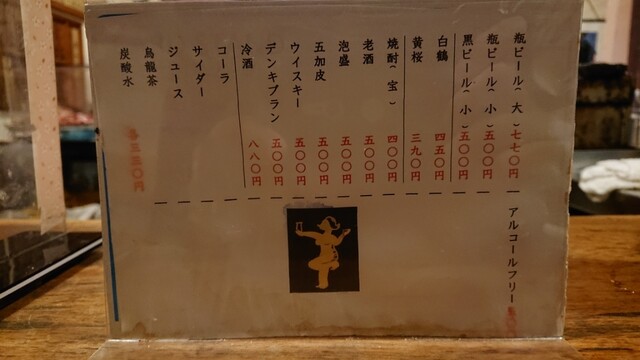 瓶ビール(大)七七〇円
瓶ビール(小)五〇〇円
黒ビール(小)五〇〇円
白鶴 四五〇円
黄桜 三九〇円
焼酎(宝)四〇〇円
老酒 五〇〇円
泡盛 五〇〇円
五加皮 五〇〇円
ウイスキー 五〇〇円
デンキブラン 五〇〇円
冷酒 八八〇円
コーラ
サイダー
ジュース
烏龍茶
炭酸水
各三三〇円
アルコールフリー